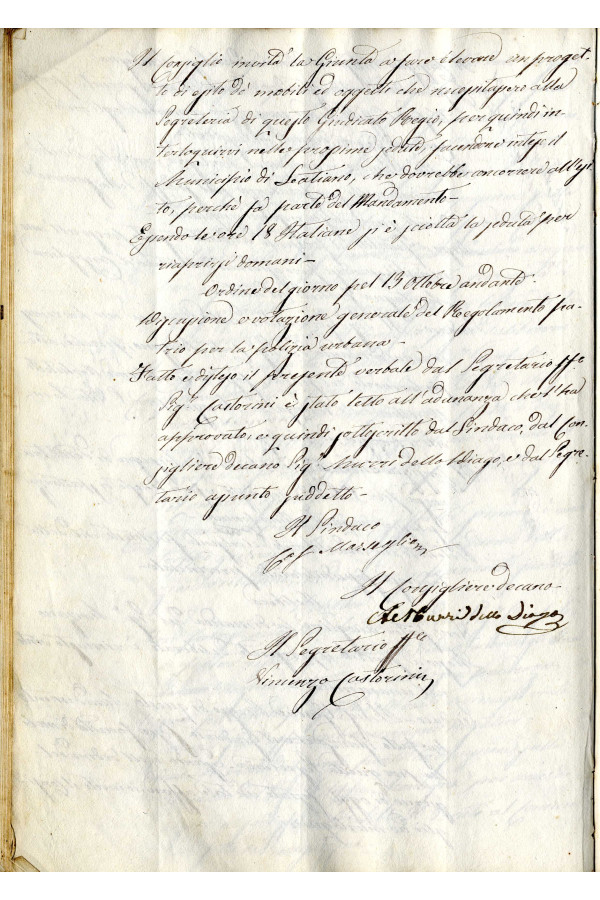 Il Consiglio invita la Giunta a fare elevare un proget-
to di esito de' mobili ed oggetti che necessitassero alla
Segreteria di questo Giudicato Regio, per quindi in-
terloquirsi nelle prossime sedute, facendone inteso il
Municipio di Latiano, che dovrebbe concorrere all'esi-
to, perchè fa parte del Mandamento -
Essendo le ore 18 Italiane si è sciolta la seduta per
riaprirsi domani -
Ordine del giorno pel 13 Ottobre andante -
Discussione e votazione generale del Regolamento pa-
trio per la polizia urbana -
Fatto e disteso il presente verbale dal Segretario ff.e
Sig.r Castorini è stato letto all'adunanza che l'ha
approvato, e quindi sottoscritto dal Sindaco, dal Con-
sigliere decano Sig.r Muzzi dello Diago, e dal Segre-
tario assunto suddetto -
Il Sindaco
Il Consigliere decano
dello Diago
Il Segretario ff.e
Vincenzo Castorini